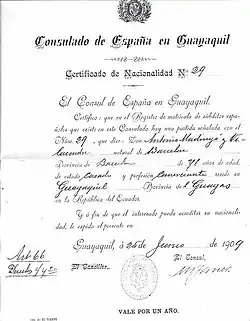 Consulado de España en Guayaquil
Certificado de Nacionalidad N.º 29
El Consul de España en Guayaquil.
Certifico: que en el Registro de matrícula de súbditos españoles
que existe en este Consulado hay una partida señalada con el
Núm. 29, que dice: Don Antonio Madinyá y
natural de Barcelona
Provincia de Barcelona de 71 años de edad,
de estado casado y profesión Comerciante reside en
Guayaquil Provincia del Guayas
en la República del Ecuador.
Y a fin de que el interesado pueda acreditar su nacionalidad,
le expido el presente en
Guayaquil, á 26 de Junio de 1909
Art 66
El Canciller,
El Consul,
VALE POR UN AÑO.